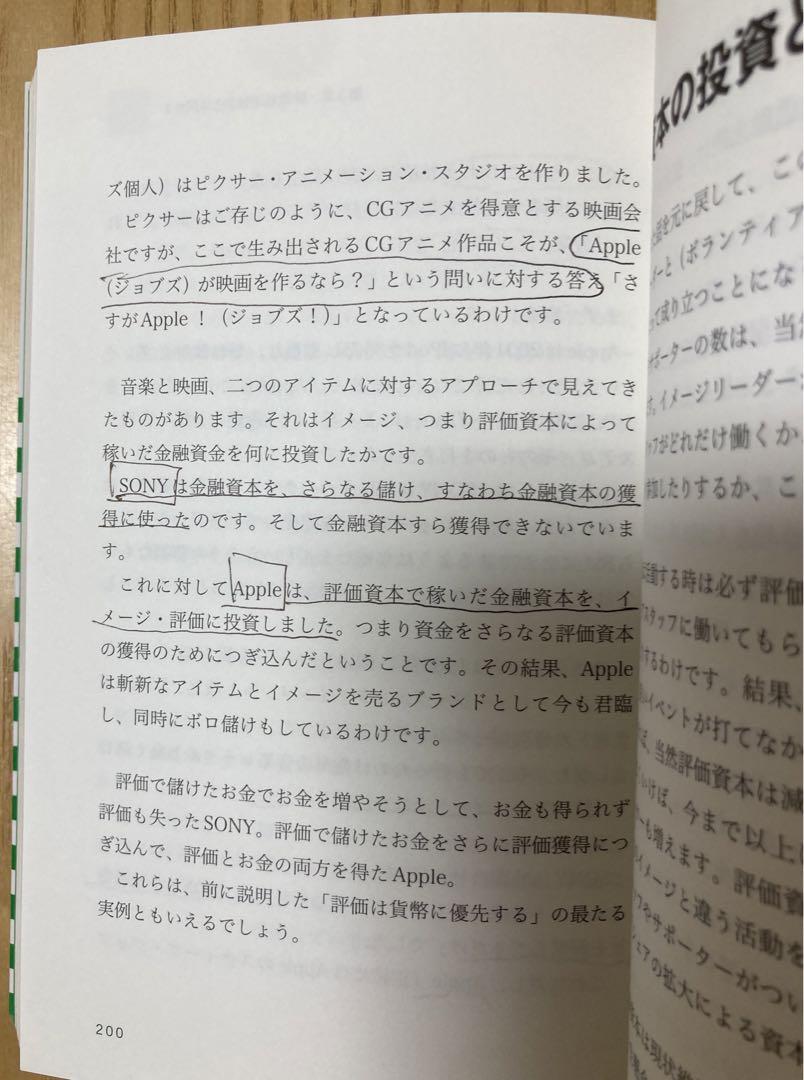 ズ個人）はピクサー・アニメーション・スタジオを作りました。
ピクサーはご存じのように、CGアニメを得意とする映画会
社ですが、ここで生み出されるCGアニメ作品こそが、「Apple
（ジョブズ）が映画を作るなら？」という問いに対する答え「さ
すがApple！（ジョブズ！）」となっているわけです。
音楽と映画、二つのアイテムに対するアプローチで見えてき
たものがあります。それはイメージ、つまり評価資本によって
稼いだ金融資金を何に投資したかです。
SONYは金融資本を、さらなる儲け、すなわち金融資本の獲
得に使ったのです。そして金融資本すら獲得できないでいま
す。
これに対してAppleは、評価資本で稼いだ金融資本を、イ
メージ・評価に投資しました。つまり資金をさらなる評価資本
の獲得のためにつぎ込んだということです。その結果、Apple
は斬新なアイテムとイメージを売るブランドとして今も君臨
し、同時にボロ儲けもしているわけです。
評価で儲けたお金でお金を増やそうとして、お金も得られず
評価も失ったSONY。評価で儲けたお金をさらに評価獲得につ
ぎ込んで、評価とお金の両方を得たApple。
これらは、前に説明した「評価は貨幣に優先する」の最たる
実例ともいえるでしょう。
200
本の投資と
を元に戻して、この
ーと（ボランティア
って成り立つことにな
サポーターの数は、当然
す。イメージリーダーが
ッフがどれだけ働くか
加したりするか、こ
動する時は必ず評価
スタッフに働いてもら
するわけです。結果、
イベントが打てなか
ば、当然評価資本は減
いけば、今まで以上に
ーも増えます。評価資
イメージと違う活動を
フやサポーターがつい
ェアの拡大による資本
本は現状維